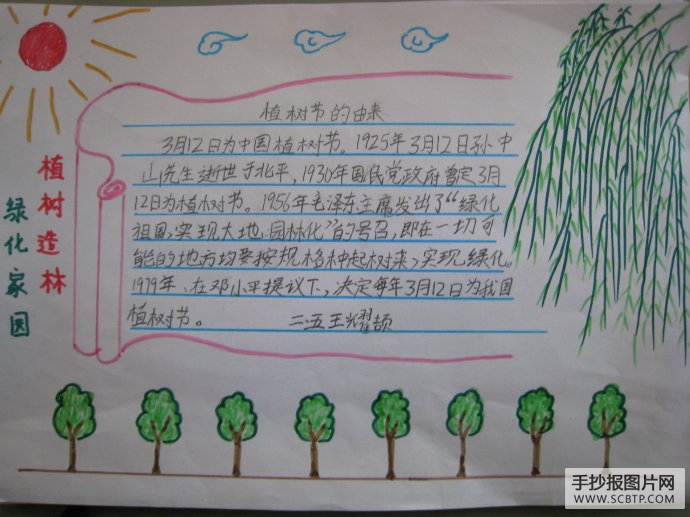 植树节的由来
3月12日为中国植树节。1925年3月12日孙中
山先生逝世于北平,1930年国民党政府曾定3月
12日为植树节。1956年毛泽东主席发出了“绿化
祖国,实现大地园林化”的号召,即在一切可
能的地方均要按规格种起树来,实现绿化。
1979年、在邓小平提议下,决定每年3月12日为我国
植树节。
三五王耀颉
植树造林
绿化家园
手抄报图片网
WWW.SCBTP.COM